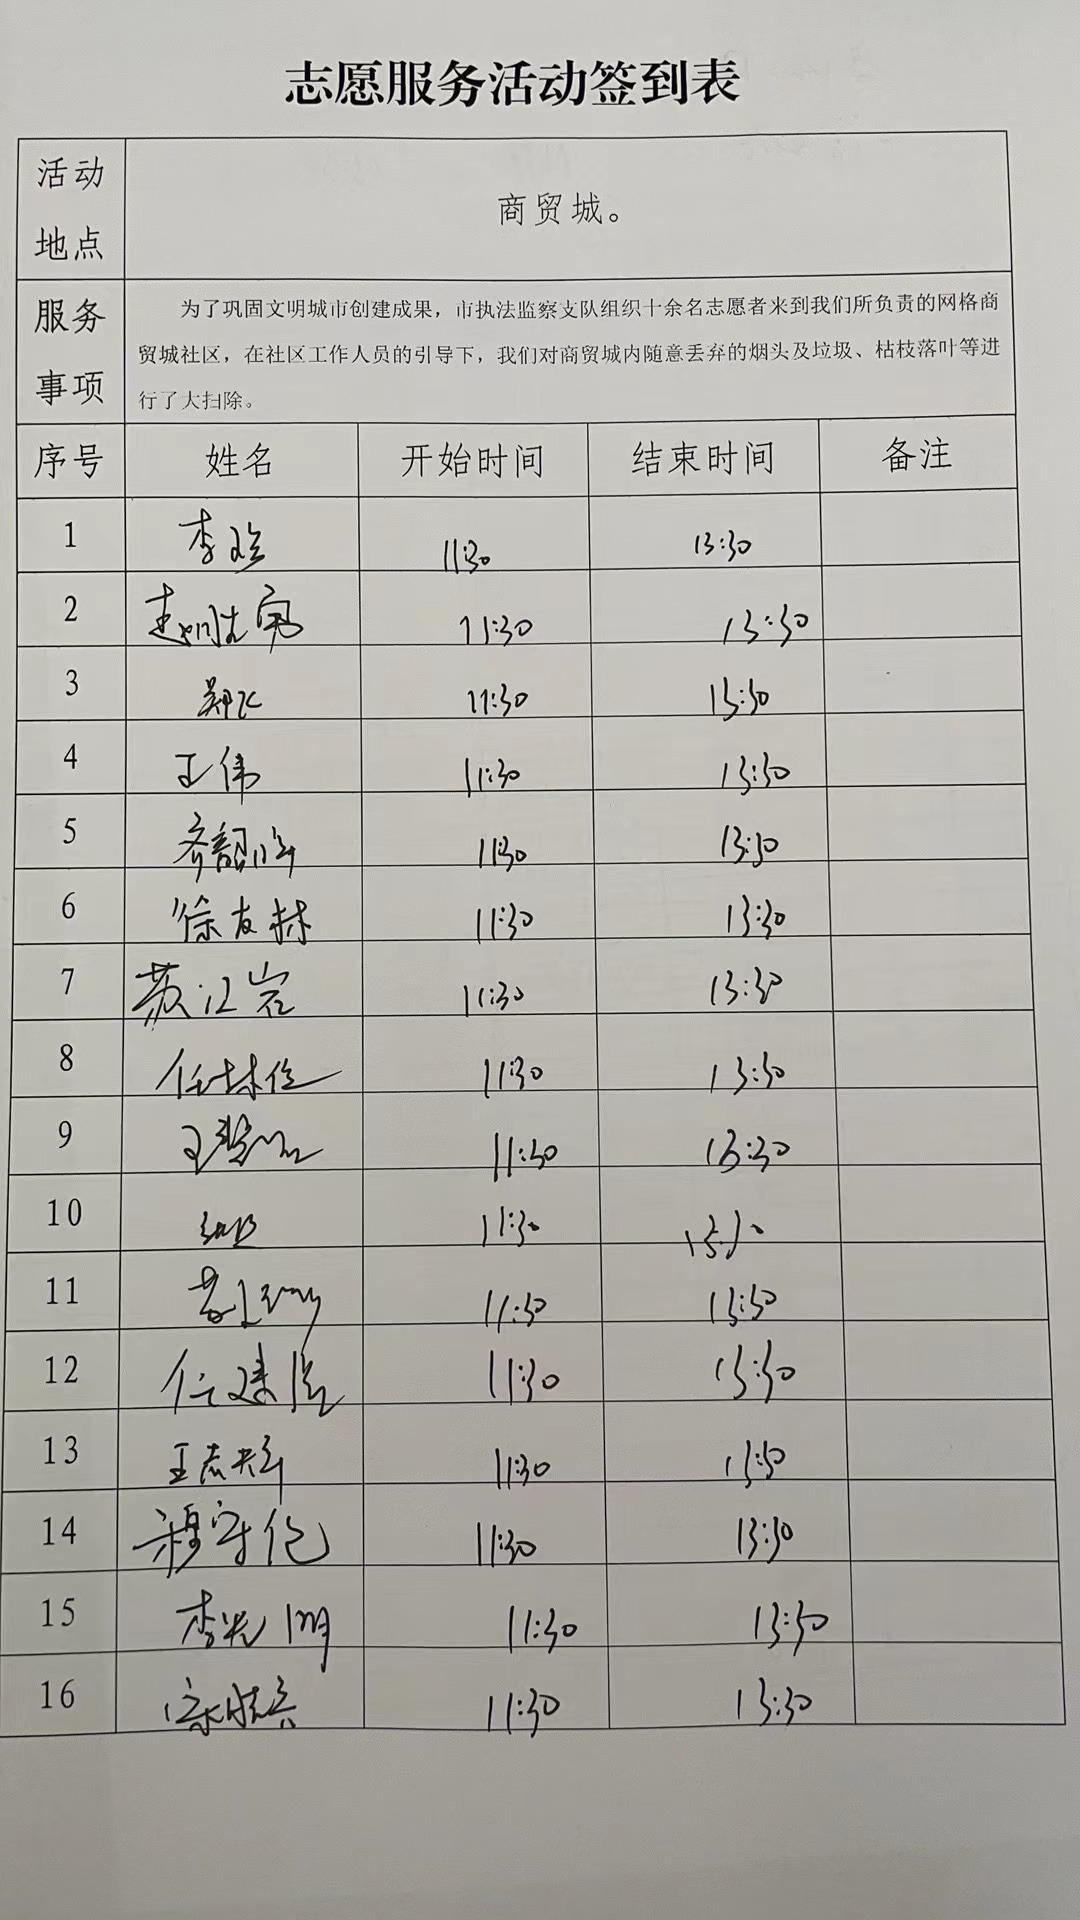 志愿服务活动签到表
活动地点 商贸城。
服务事项
为了巩固文明城市创建成果，市执法监察支队组织十余名志愿者来到我们所负责的网格商
贸城社区，在社区工作人员的引导下，我们对商贸城内随意丢弃的烟头及垃圾、枯枝落叶等进
行了大扫除。
序号 姓名 开始时间 结束时间 备注
1 11:30 13:30
2 11:30 13:30
3 郑飞 11:30 13:30
4 王伟 11:30 13:30
5 11:30 13:30
6 徐友林 11:30 13:30
7 苏江岩 11:30 13:30
8 11:30 13:30
9 11:30 13:30
10 11:30
11 11:30 13:30
12 11:30 13:30
13 11:30 13:30
14 穆守伦 11:30 13:30
15 李光明 11:30 13:30
16 11:30 13:30